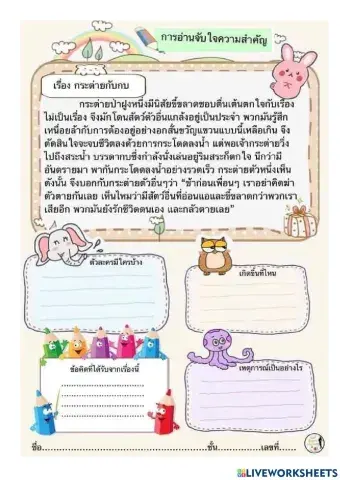 การอ่านจับใจความสำคัญ
เรื่อง กระต่ายกับกบ
กระต่ายป่าฝูงหนึ่งมีนิสัยขี้ขลาดชอบตื่นเต้นตกใจกับเรื่อง
ไม่เป็นเรื่อง จึงมักโดนสัตว์ตัวอื่นแกล้งอยู่เป็นประจำ พวกมันรู้สึก
เหนื่อยล้ากับการต้องอยู่อย่างอกสั่นขวัญแขวนแบบนี้เหลือเกิน จึง
ตัดสินใจจะจบชีวิตลงด้วยการกระโดดลงน้ำ แต่พอเจ้ากระต่ายวิ่ง
ไปถึงสระน้ำ บรรดากบซึ่งกำลังนั่งเล่นอยู่ริมสระก็ตกใจ นึกว่ามี
อันตรายมา พากันกระโดดลงน้ำอย่างรวดเร็ว กระต่ายตัวหนึ่งเห็น
ดังนั้น จึงบอกกับกระต่ายตัวอื่นๆว่า "ช้าก่อนเพื่อนๆ เราอย่าคิดฆ่า
ตัวตายกันเลย เห็นไหมว่ามีสัตว์อื่นที่อ่อนแอและขี้ขลาดกว่าพวกเรา
เสียอีก พวกมันยังรักชีวิตตนเอง และกลัวตายเลย"
ตัวละครมีใครบ้าง
เกิดขึ้นที่ไหน
ข้อคิดที่ได้รับจากเรื่องนี้
เหตุการณ์เป็นอย่างไร
ชื่อ..................................................ชั้น................เลขที่......
LIVEWORKSHEETS